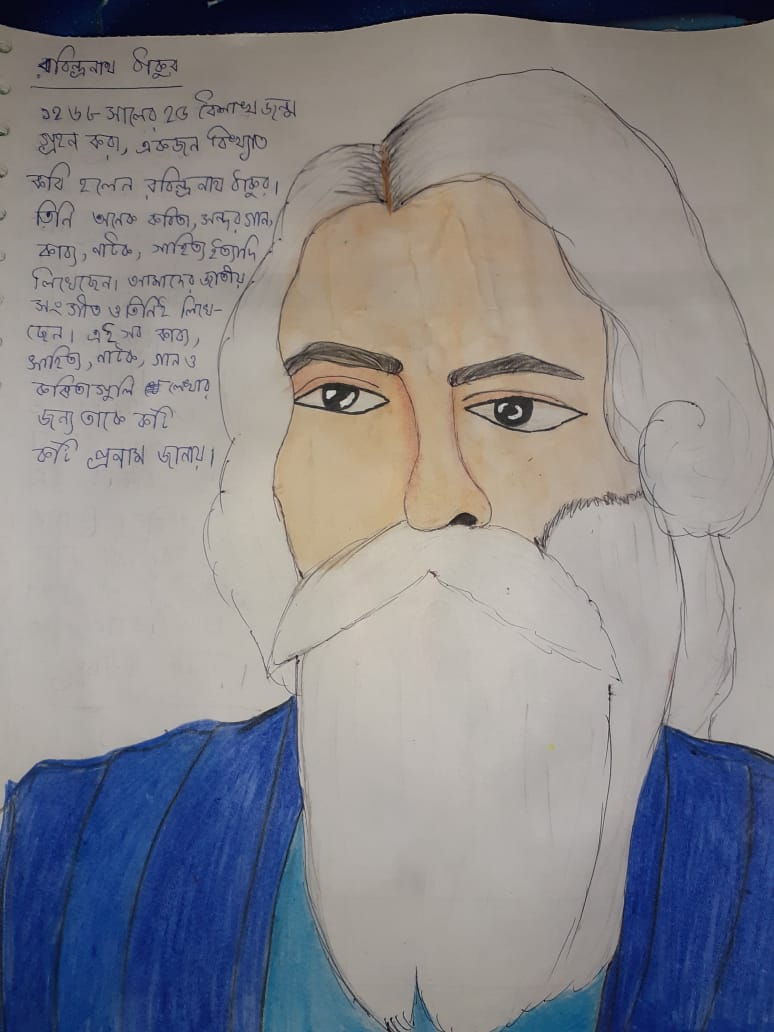 রবিন্দ্রনাথ ঠাকুর
১২৬৮ সালের ২৫ বৈশাখ জন্ম
গ্রহন করা, একজন বিখ্যাত
কবি হলেন রবিন্দ্রনাথ ঠাকুর।
তিনি অনেক কবিতা, সুন্দর গান,
কাব্য, নাটক, সাহিত্য ইত্যাদি
লিখেছেন। আমাদের জাতীয়
সংগীত ও তিনিই লিখে-
ছেন। এই সব কাব্য,
সাহিত্য, নাটক, গান ও
কবিতা গুলি লেখার
জন্য তাকে কটি
কটি প্রনাম জানায়।